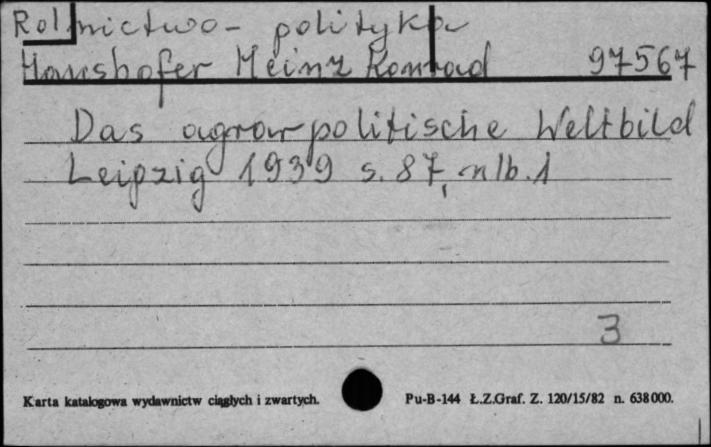 Rolnictwo - polityka
Haushofer Heinz Konrad 97567
Das agrarpolitische Weltbild
Leipzig 1939 s. 87, nlb. 1
3
Karta katalogowa wydawnictw ciągłych i zwartych. Pu-B-144 Ł.Z.Graf. Z. 120/15/82 n. 638000.